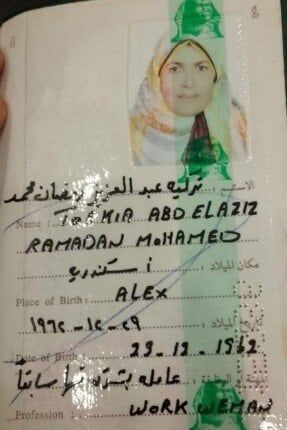 الاسم : تركيه عبد العزيز رمضان محمد
Name : TREMIA ABD ELAZIZ
RAMADAN MOHAMED
مكان الميلاد : اسكندرية
Place of Birth : ALEX
تاريخ الميلاد : ١٩٦٢ - ١٢ - ٢٩
Date of Birth : 29-12-1962
عامله بشركه سابقا
Profession : WORK WEMAN